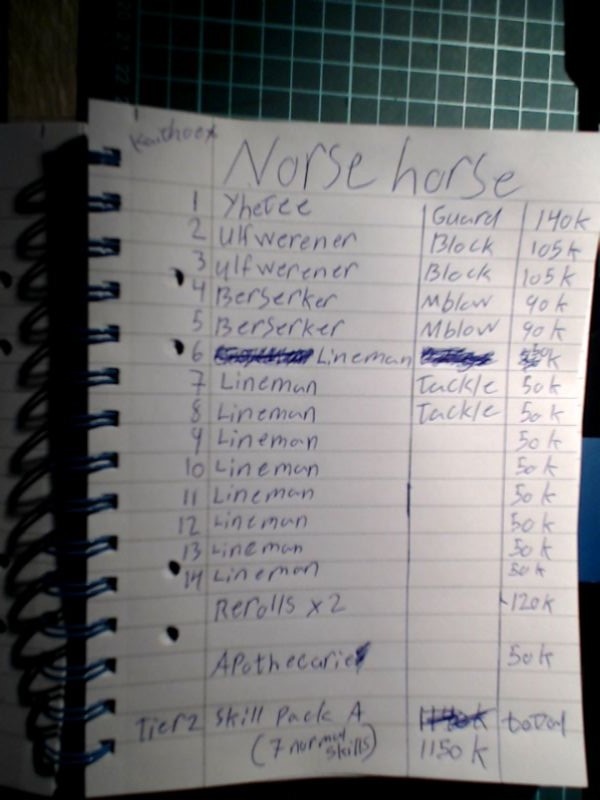 Norse horse
1 Yhetee Guard 140k
2 Ulfwerener Block 105k
3 Ulfwerener Block 105k
4 Berserker Mblow 90k
5 Berserker Mblow 90k
6 Lineman
7 Lineman Tackle 50k
8 Lineman Tackle 50k
9 Lineman 50k
10 Lineman 50k
11 Lineman 50k
12 Lineman 50k
13 Lineman 50k
14 Lineman 50k
Rerolls x2 120k
Apothecarie 50k
Tier 2 Skill Pack A total
(7 normal skills) 1150k